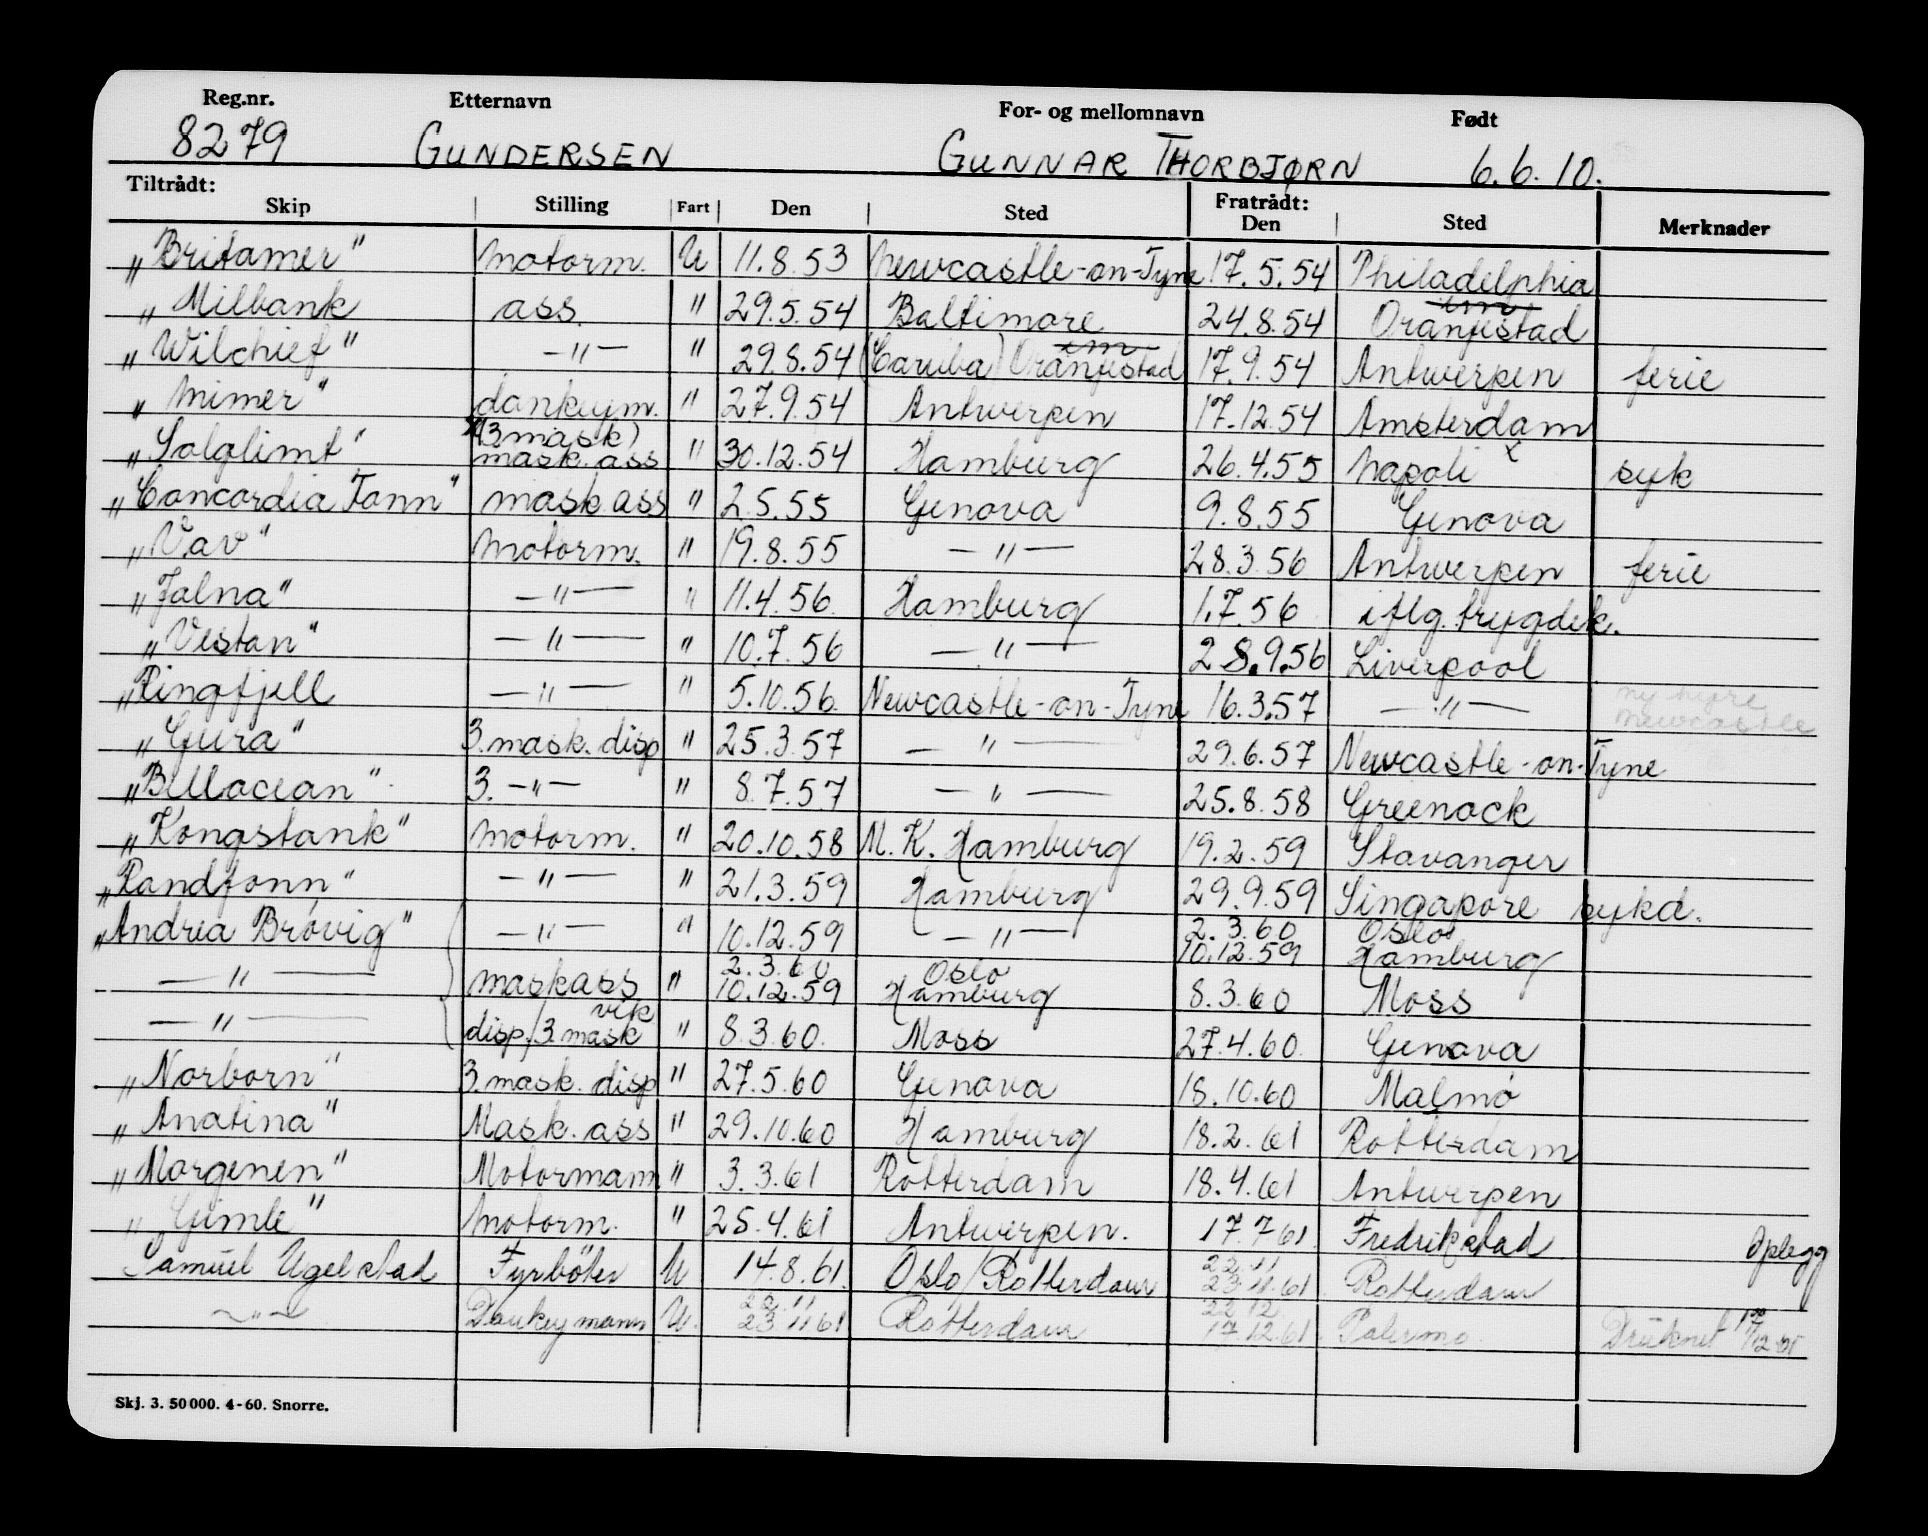 Reg.nr. Etternavn For- og mellomnavn Født
8279 GUNDERSEN GUNNAR THORBJØRN 6.6.10.
Tiltrådt: Fratrådt:
Skip Stilling Fart Den Sted Den Sted Merknader
„Britamer" Motorm. U 11.8.53 Newcastle-on-Tyne 17.5.54 Philadelphia
„Milbank ass. " 29.5.54 Baltimore 24.8.54 Oranjestad
„Wilchief" —"— " 29.8.54 (Caruba) Oranjestad 17.9.54 Antwerpen ferie
„Mimer" dankeym. " 27.9.54 Antwerpen 17.12.54 Amsterdam
„Solglimt" x(3 mask) mask. ass " 30.12.54 Hamburg 26.4.55 Napoli x syk
„Concordia Fonn" mask ass " 2.5.55 Genova 9.8.55 Genova
„Vav" Motorm. " 19.8.55 —"— 28.3.56 Antwerpen ferie
„Jalna" —"— " 11.4.56 Hamburg 1.7.56 iflg. trygdek.
„Vestan" —"— " 10.7.56 —"— 28.9.56 Liverpool
„Ringfjell —"— " 5.10.56 Newcastle-on-Tyne 16.3.57 —"— ny hyre Newcastle
„Gura" 3.mask. disp " 25.3.57 —"— 29.6.57 Newcastle-on-Tyne
„Bellocean" 3. —"— " 8.7.57 —"— 25.8.58 Greenock
„Kongstank" Motorm. " 20.10.58 M.K. Hamburg 19.2.59 Stavanger
„Randfonn" —"— " 21.3.59 Hamburg 29.9.59 Singapore sykd.
„Andrea Brøvig" —"— " 10.12.59 —"— 2.3.60 10.12.59 Oslo Hamburg
—"— maskass " 2.3.60 10.12.59 Oslo Hamburg 8.3.60 Moss
—"— disp/3.mask vik " 8.3.60. Moss 27.4.60. Genova
„Norborn" 3.mask. disp " 27.5.60 Genova 18.10.60 Malmø
„Anatina" Mask. ass " 29.10.60 Hamburg 18.2.61 Rotterdam
„Morgenen" Motormann " 3.3.61 Rotterdam 18.4.61 Antwerpen
„Gimle" Motorm. " 25.4.61 Antwerpen. 17.7.61 Fredrikstad Oplegg
Samuel Ugelstad Fyrbøter U 14.8.61. Oslo/Rotterdam 22.11 23.11.61 Rotterdam
—"— Donkeymann U. 22.11 23.11.61 Rotterdam 22.12 17.12.61. Palermo. Druknet 17/12-61
Skj. 3. 50 000. 4-60. Snorre.